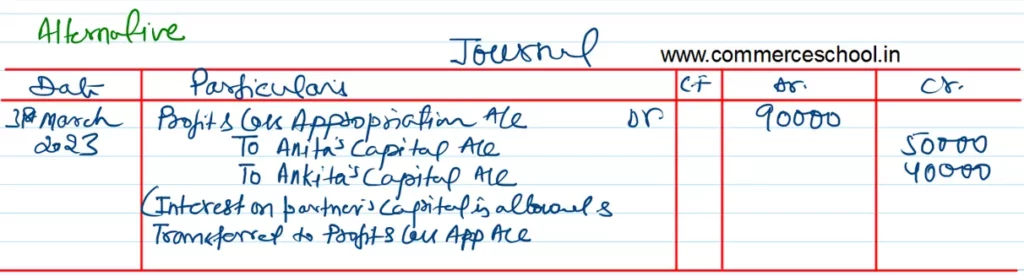 Alternative
Journal www.commerceschool.in
Date Particulars LF Dr. Cr.
31st March Profit & Loss Appropriation A/c Dr 90000
2023 To Anita's Capital A/c 50000
To Ankita's Capital A/c 40000
(Interest on partner's capital is allowed &
Transferred to Profit & Loss App A/c